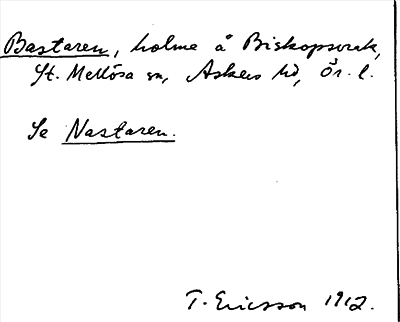 Bastaren, holme å Biskopsvrak,
St. Mellösa sn, Askers hd, Ör. l.
Se Nastaren.
T. Ericsson 1912.